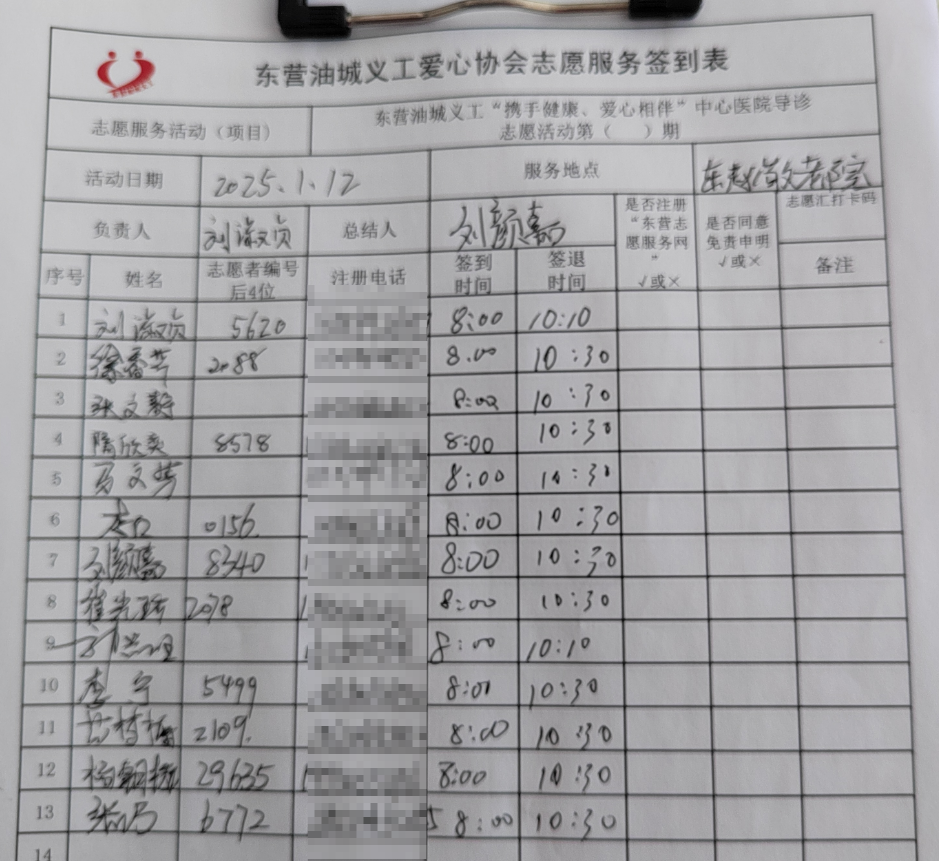 东营油城义工爱心协会志愿服务签到表
志愿服务活动（项目） 东营油城义工“携手健康、爱心相伴”中心医院导诊
志愿活动第（ ）期
活动日期 2025.1.12 服务地点
负责人 刘淑贞 总结人 刘颜嘉 是否注册“东营志愿服务网” √或× 是否同意免责申明 √或× 志愿汇打卡码
序号 姓名 志愿者编号后4位 注册电话 签到时间 签退时间 备注
1 刘淑贞 5620 8:00 10:10
2 2088 8:00 10:30
3 8:00 10:30
4 8578 8:00 10:30
5 马文芳 8:00 10:30
6 0156. 8:00 10:30
7 刘颜嘉 8340 8:00 10:30
8 2078 8:00 10:30
9 8:00 10:10
10 李宁 5499 8:00 10:30
11 2109. 8:00 10:30
12 29635 8:00 10:30
13 6772 8:00 10:30
14